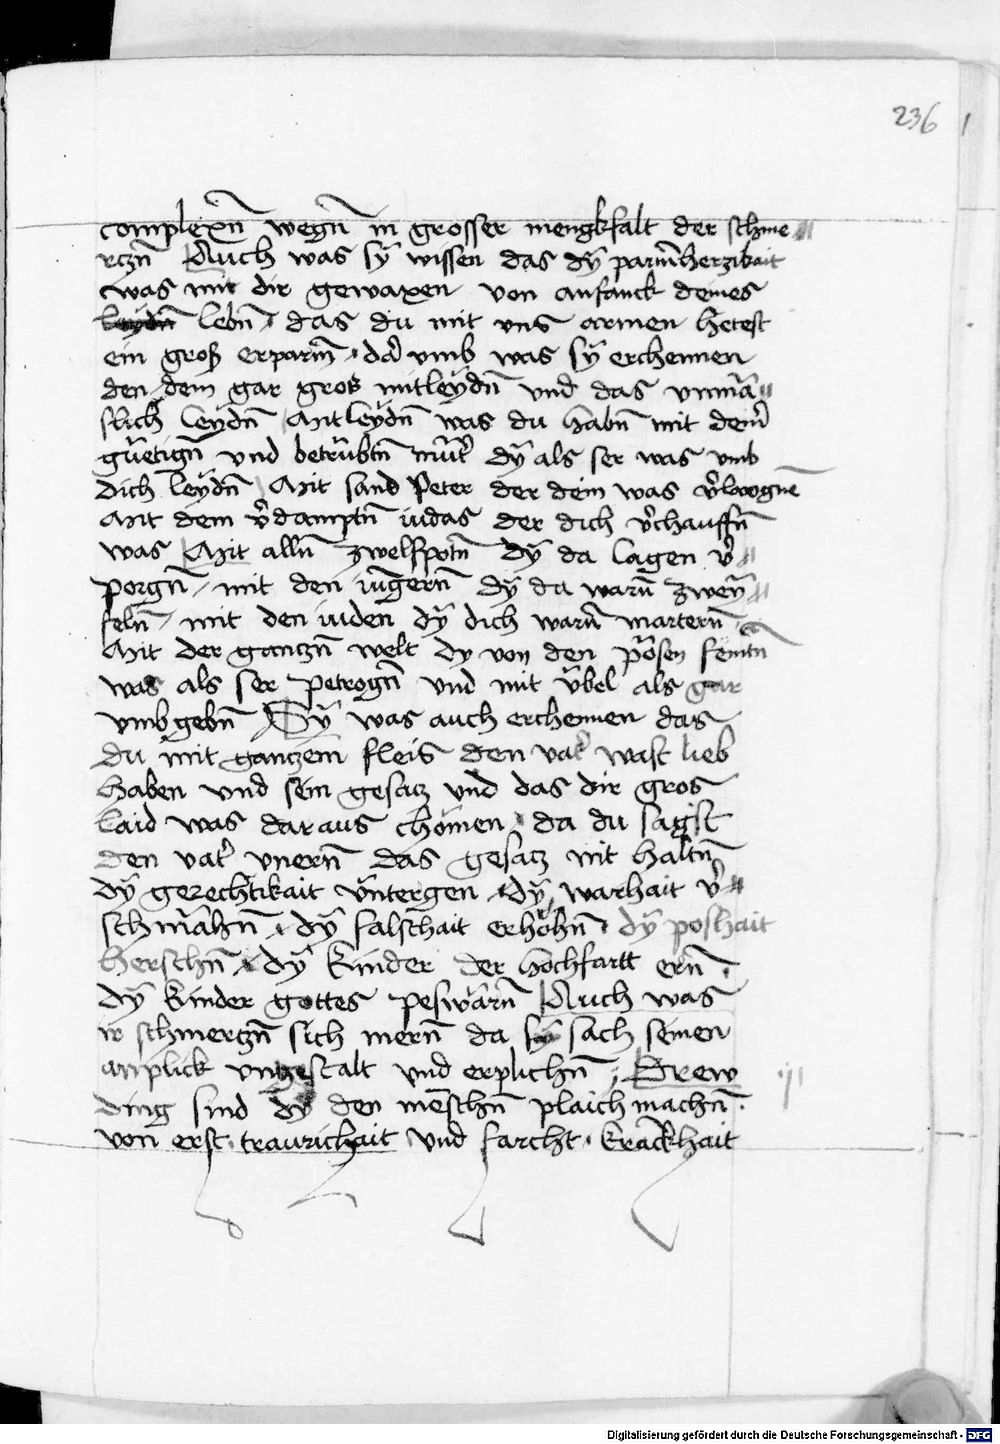 236
complexn̄ wegn̄ in grosser mengkfalt der schme〃
rczn̄ Auch was sÿ wissen das dÿ parm̄herzikait
was mit dir gewaxen von anfanck deines
lebn̄ das du mit vns armen hetest
ein groß erparm̄ · da vmb was sÿ erchennen
den dem gar gros mitleÿdn̄ vnd das vnmä〃
slich leÿdn̄ Mitleÿdn̄ was du habn̄ mit deīr
gu̎etign̄ vnd betru̎btn̄ mu̎t̉ dÿ als ser was vmb
dich leÿdn̄ Mit sand Peter der dein was v̉laugnē
Mit dem v̉damptn̄ iudas der dich v̉chauffn̄
was Mit alln̄ zwelfpotn̄ dÿ da lagen v̉〃
porgn̄ / mit den iūgern̄ dÿ da warn̄ zweÿ〃
feln̄ / mit den iuden dÿ dich warn̄ martern̄
Mit der gantzn̄ welt dy von den pösen feintn̄
was als ser petrogn̄ vnd mit v̈bel als gar
vmbgebn̄ Sÿ was auch erchennen das
du mit gantzem fleis den vat̉ wast lieb
haben vnd sein gesacz vnd das dir gros
laid was daraus chömen · da du sagst
den vat̉ vnern̄ das gesacz nit haltn̄
dÿ gerechtikait v̈ntergen · dÿ warhait v̉〃
schmähn̄ · dÿ falschait erhöhn̄ · dÿ poshait
herschn̄ · dÿ kinder der hochfartt ern̄ ·
dÿ kinder gottes peswärn̄ Auch was
ir schmerczn̄ sich mern̄ da sÿ sach seinen
anplick vngestalt vnd erplichn̄ ; Drew
ding sind dÿ den mēschn̄ plaich machn̄ ·
von erst · traurichait vnd farcht · kranckhait
Digitalisierung gefördert durch die Deutsche Forschungsgemeinschaft - DFG